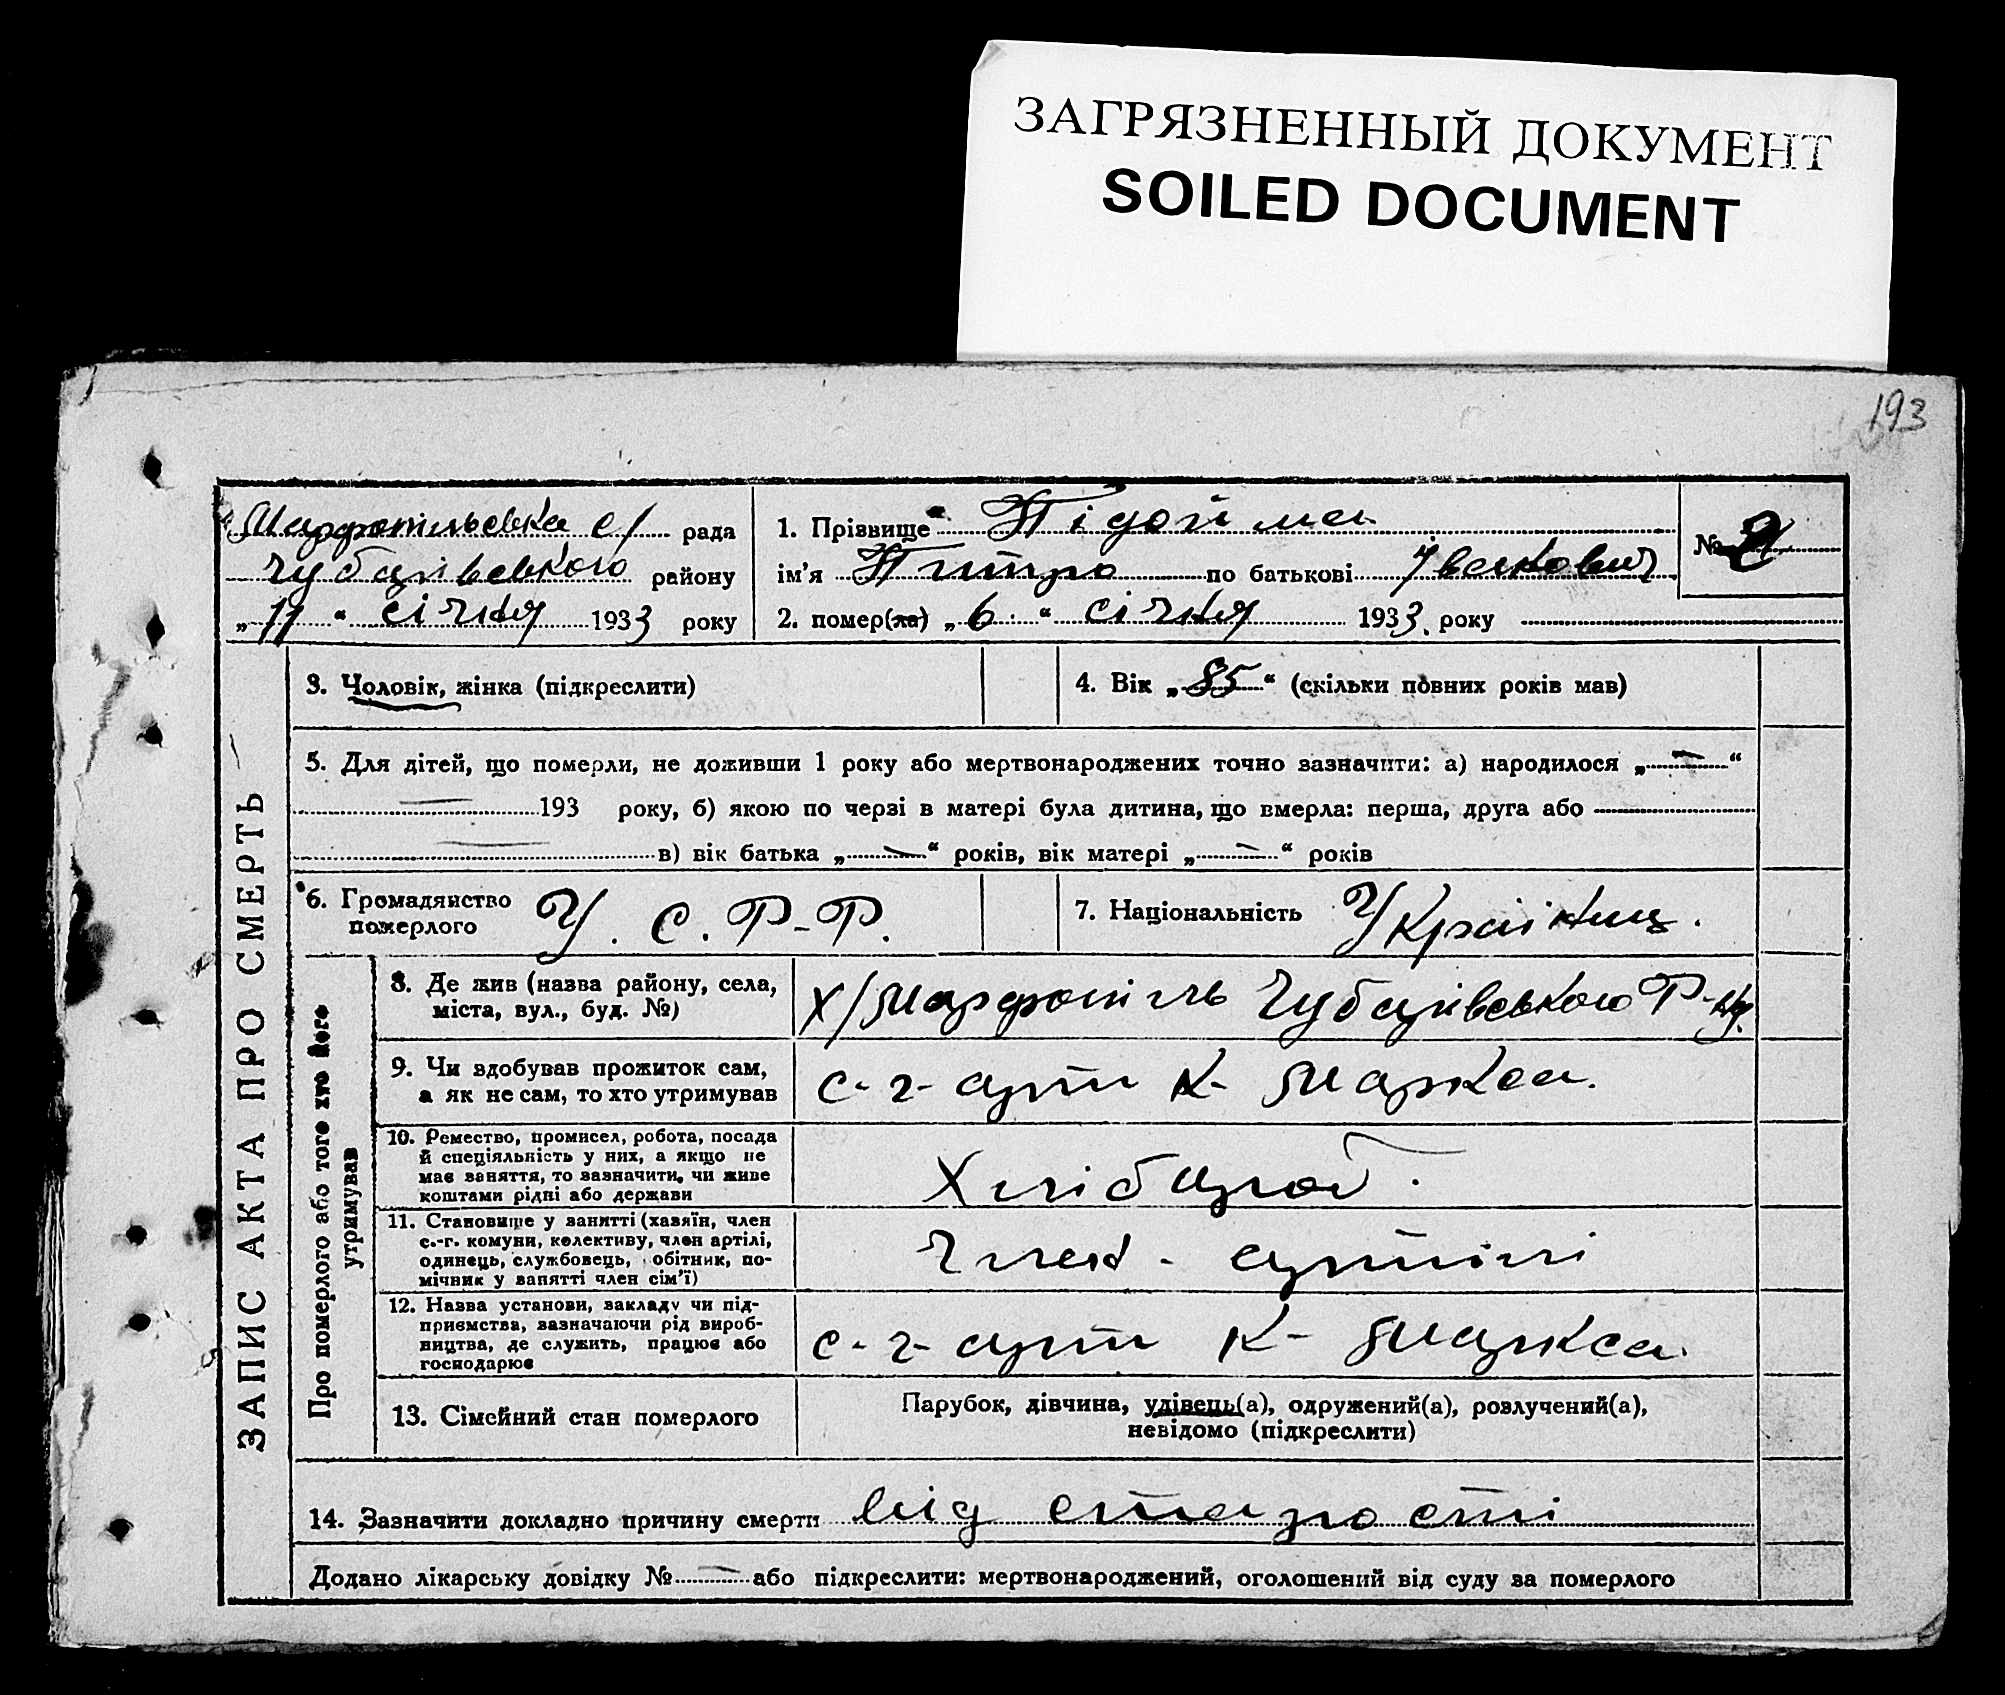 ЗАГРЯЗНЕННЫЙ ДОКУМЕНТ
SOILED DOCUMENT
193
ЗАПИС АКТА ПРО СМЕРТЬ
Марфопільська с/ рада
Чубарівського району
„11“ січня 1933 року
1. Прізвище Підойма
ім'я Питро по батькові Іванович
№ 2
2. помер(ла) „6“ січня 1933. року
3. Чоловік, жінка (підкреслити)
4. Вік „85“ (скільки повних років мав)
5. Для дітей, що померли, не доживши 1 року або мертвонароджених точно зазначити: а) народилося „—“
— 193 року, б) якою по черзі в матері була дитина, що вмерла: перша, друга або
— в) вік батька „—“ років, вік матері „—“ років
6. Громадянство
померлого
У. С. Р-Р.
7. Національність Україниц.
Про померлого або того хто його
утримував
8. Де жив (назва району, села,
міста, вул., буд. №)
Х/Марфопіль Чубарівського Р-ну.
9. Чи вдобував прожиток сам,
а як не сам, то хто утримував
с-г-арт К- Маркса.
10. Ремество, промисел, робота, посада
й спеціяльність у них, а якщо не
має заняття, то зазначити, чи живе
коштами рідні або держави
Хлібароб.
11. Становище у занятті (хазяїн, член
с.-г. комуни, колективу, член артілі,
одинець, службовець, обітник, по-
мічник у занятті член сім'ї)
Член - артілі
12. Назва установи, закладу чи під-
приємства, зазначаючи рід вироб-
ництва, де служить, працює або
господарює
с-г-арт К- Маркса.
13. Сімейний стан померлого
Парубок, дівчина, удівець(а), одружений(а), розлучений(а),
невідомо (підкреслити)
14. Зазначити докладно причину смерти від старості
Додано лікарську довідку №— або підкреслити: мертвонароджений, оголошений від суду за померлого